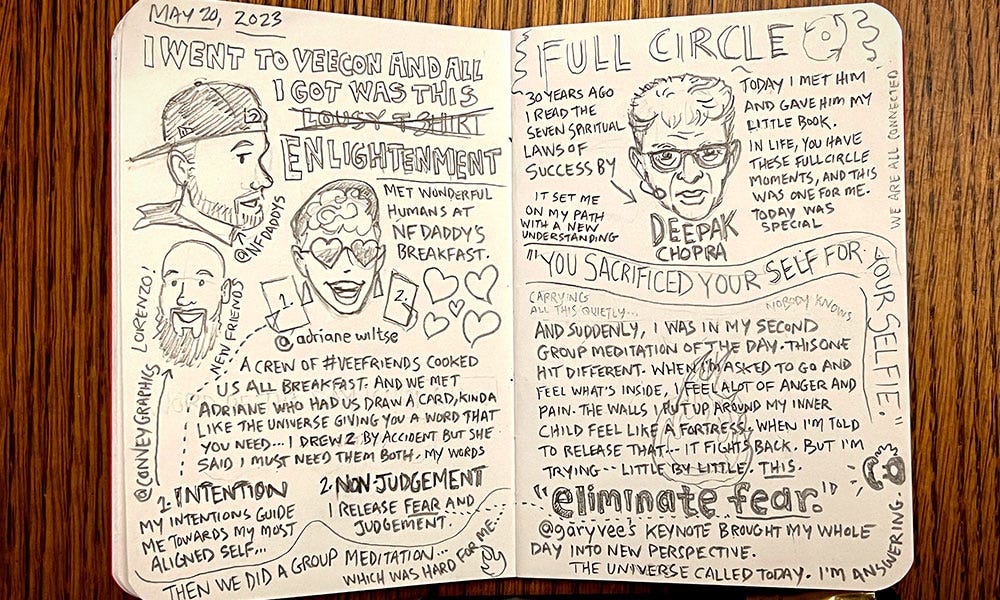 MAY 20, 2023
I WENT TO VEECON AND ALL
I GOT WAS THIS
LOUSY T-SHIRT
ENLIGHTENMENT
@NFDADDYS
MET WONDERFUL
HUMANS AT
NFDADDY'S
BREAKFAST.
1.
2.
@adriane wiltse
LORENZO!
@CONVEYGRAPHICS
NEW FRIENDS
A CREW OF #VEEFRIENDS COOKED
US ALL BREAKFAST. AND WE MET
ADRIANE WHO HAD US DRAW A CARD, KINDA
LIKE THE UNIVERSE GIVING YOU A WORD THAT
YOU NEED... I DREW 2 BY ACCIDENT BUT SHE
SAID I MUST NEED THEM BOTH. MY WORDS
1. INTENTION
MY INTENTIONS GUIDE
ME TOWARDS MY MOST
ALIGNED SELF...
2. NON-JUDGEMENT
I RELEASE FEAR AND
JUDGEMENT.
THEN WE DID A GROUP MEDITATION...
WHICH WAS HARD FOR ME...
FULL CIRCLE
30 YEARS AGO
I READ THE
SEVEN SPIRITUAL
LAWS OF
SUCCESS BY
IT SET ME
ON MY PATH
WITH A NEW
UNDERSTANDING
DEEPAK
CHOPRA
TODAY I MET HIM
AND GAVE HIM MY
LITTLE BOOK.
IN LIFE, YOU HAVE
THESE FULL CIRCLE
MOMENTS, AND THIS
WAS ONE FOR ME.
TODAY WAS
SPECIAL
WE ARE ALL CONNECTED.
"YOU SACRIFICED YOUR SELF FOR YOUR SELFIE."
CARRYING
ALL THIS QUIETLY...
NOBODY KNOWS
AND SUDDENLY, I WAS IN MY SECOND
GROUP MEDITATION OF THE DAY. THIS ONE
HIT DIFFERENT. WHEN I'M ASKED TO GO AND
FEEL WHAT'S INSIDE, I FEEL A LOT OF ANGER AND
PAIN. THE WALLS I PUT UP AROUND MY INNER
CHILD FEEL LIKE A FORTRESS. WHEN I'M TOLD
TO RELEASE THAT... IT FIGHTS BACK. BUT I'M
TRYING... LITTLE BY LITTLE. THIS.
"eliminate fear."
@garyvee's KEYNOTE BROUGHT MY WHOLE
DAY INTO NEW PERSPECTIVE.
THE UNIVERSE CALLED TODAY. I'M ANSWERING.